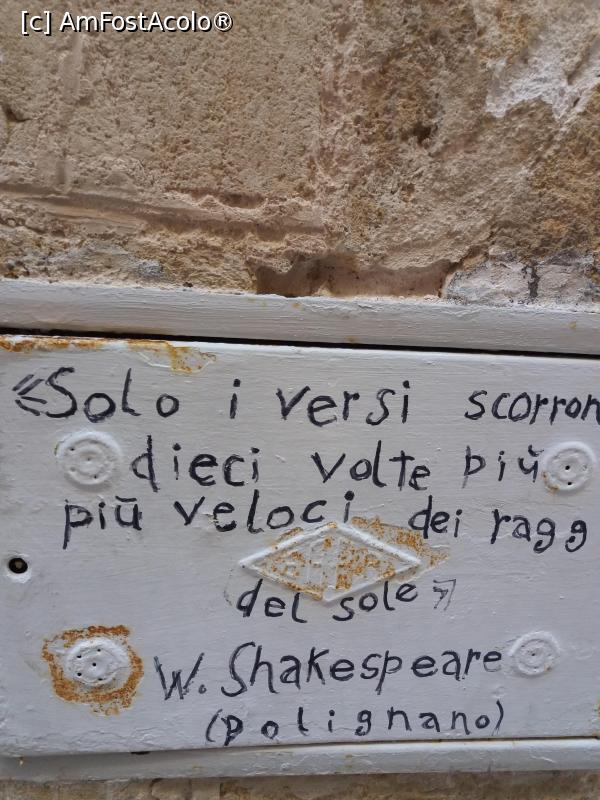 [c] AmFostAcolo®
«Solo i versi scorron
dieci volte più
più veloci dei ragg
del sole»
W. Shakespeare
(Polignano)